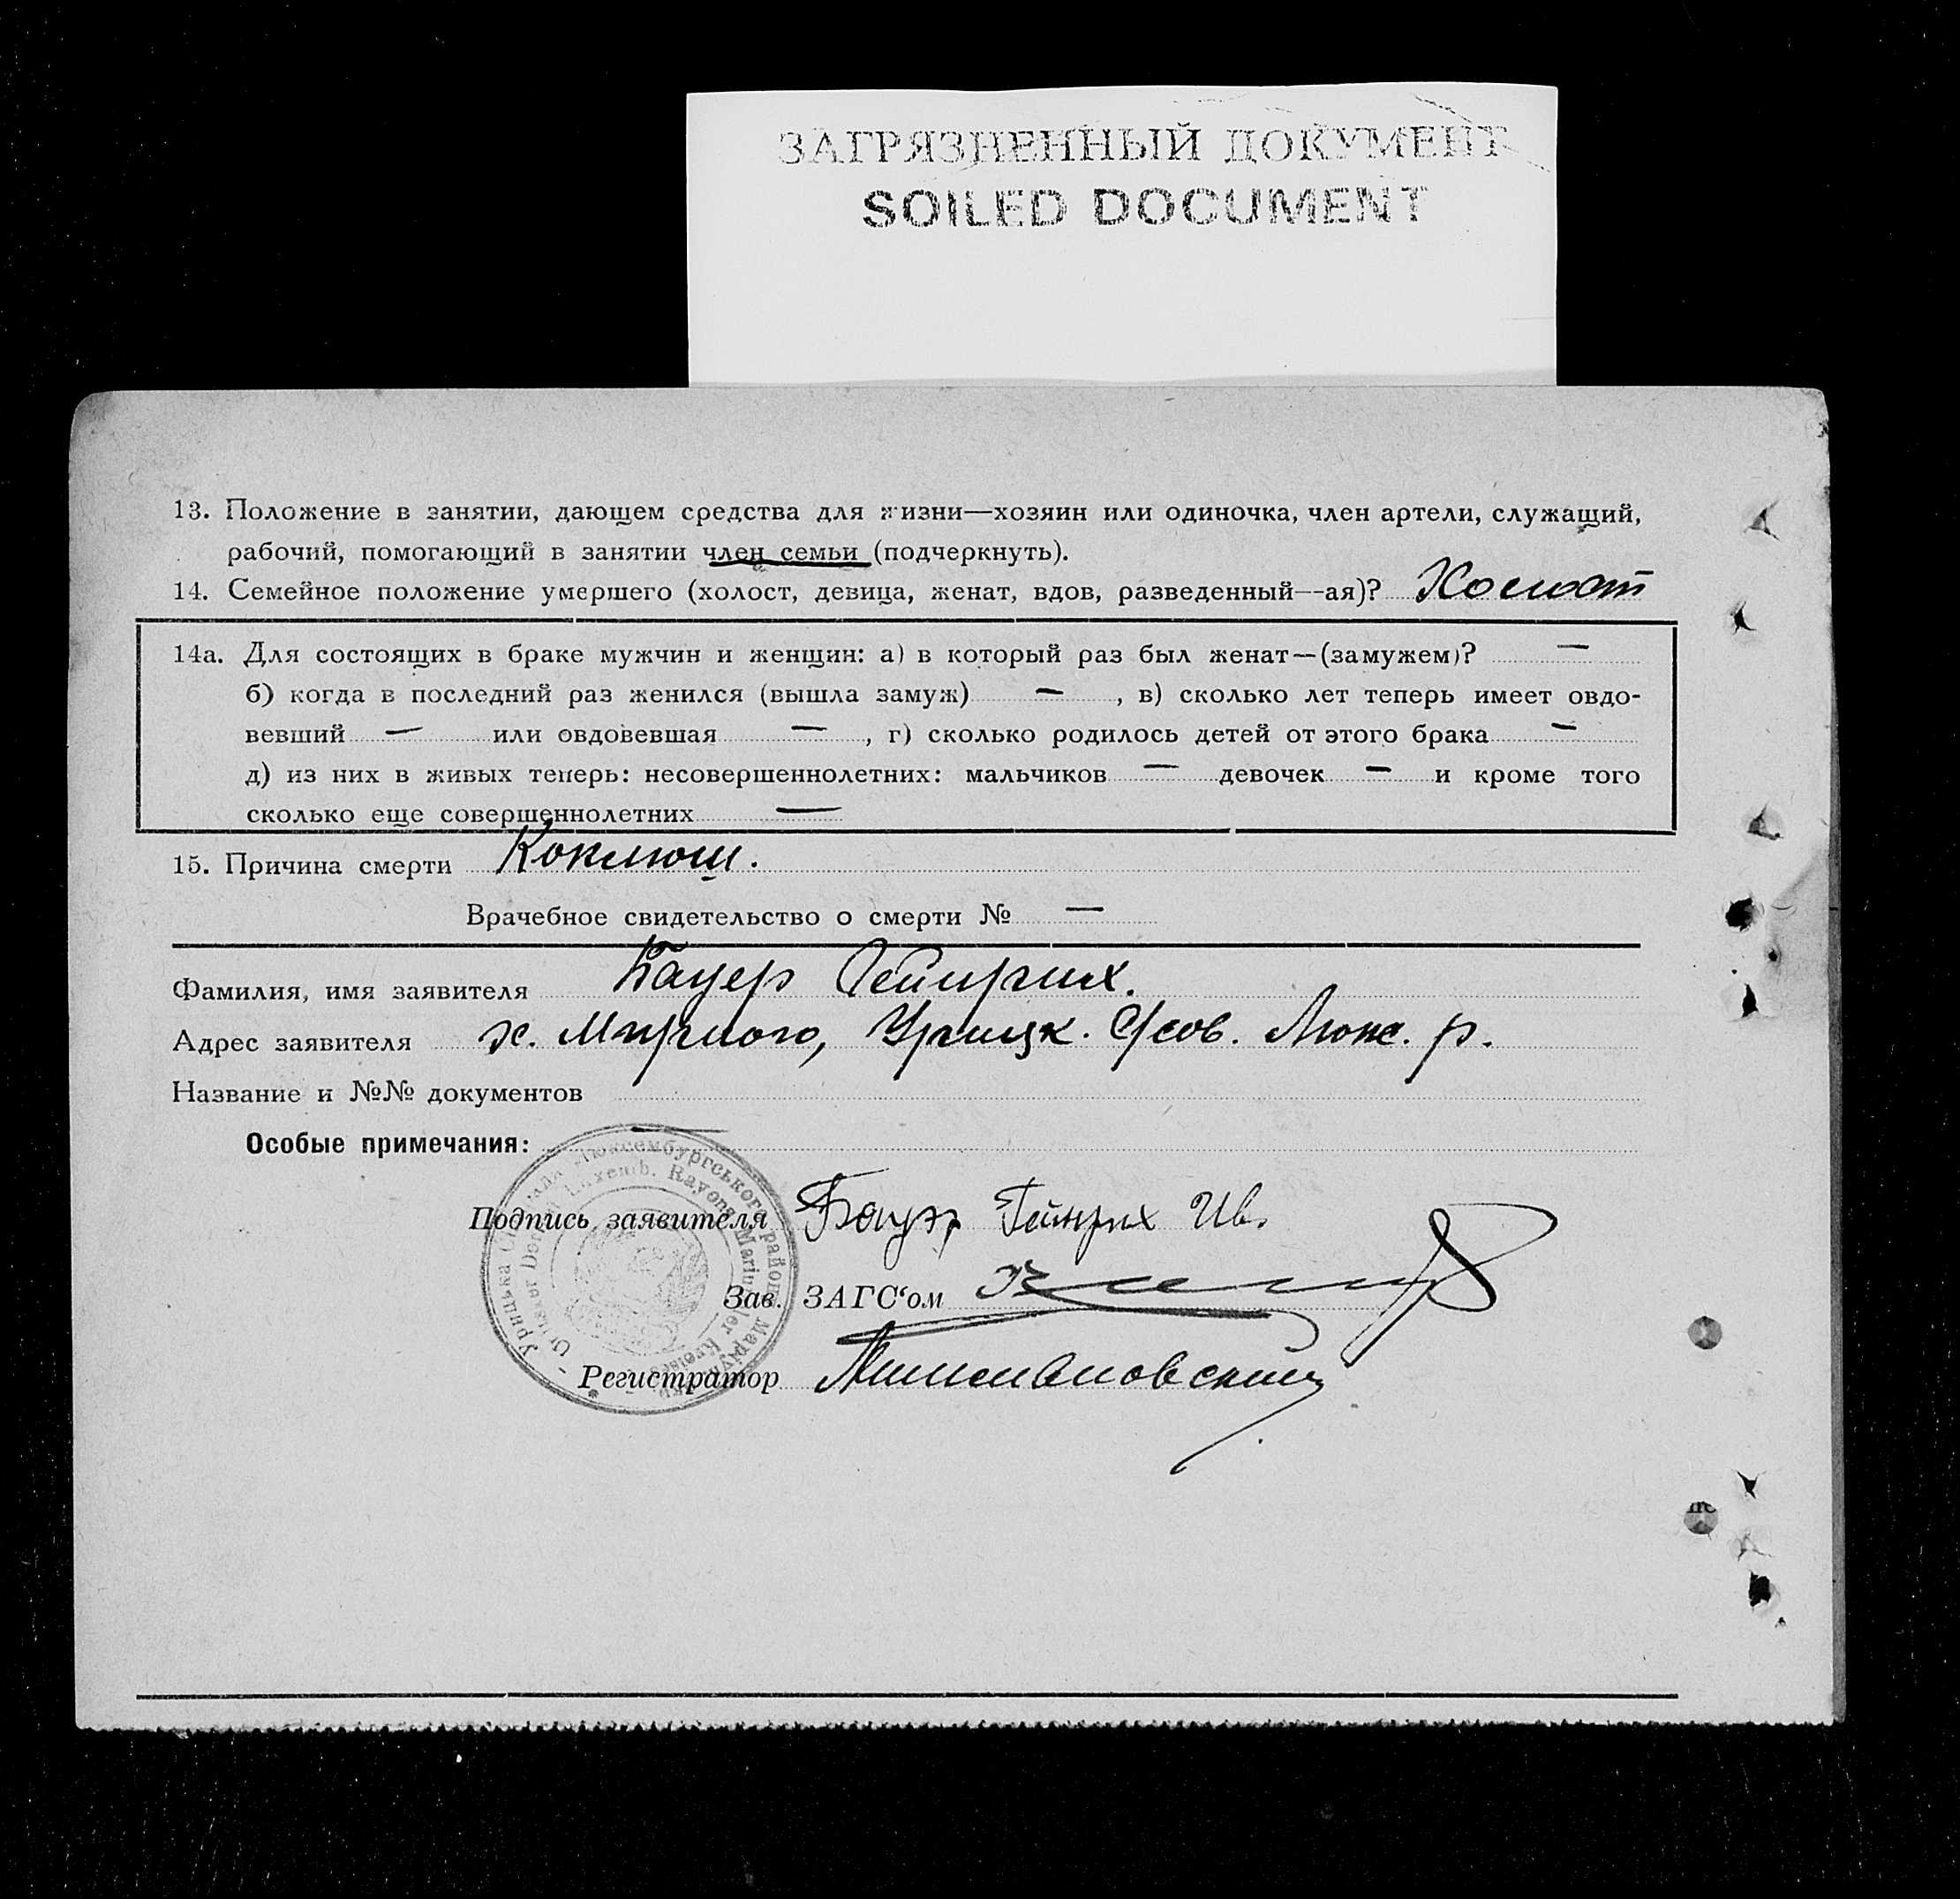 ЗАГРЯЗНЕННЫЙ ДОКУМЕНТ
SOILED DOCUMENT
13. Положение в занятии, дающем средства для жизни—хозяин или одиночка, член артели, служащий,
рабочий, помогающий в занятии член семьи (подчеркнуть).
14. Семейное положение умершего (холост, девица, женат, вдов, разведенный—ая)? Холост
14а. Для состоящих в браке мужчин и женщин: а) в который раз был женат—(замужем)? —
б) когда в последний раз женился (вышла замуж) — , в) сколько лет теперь имеет овдо-
вевший — или овдовевшая — , г) сколько родилось детей от этого брака —
д) из них в живых теперь: несовершеннолетних: мальчиков — девочек — и кроме того
сколько еще совершеннолетних —
15. Причина смерти Коклюш.
Врачебное свидетельство о смерти № —
Фамилия, имя заявителя Бауер Гейнрих.
Адрес заявителя х. Мирного, Урицк. С/сов. Люкс. р.
Название и №№ документов
Особые примечания: —
Подпись заявителя Бауэр Гейнрих Ив.
Зав. ЗАГС‘ом
Регистратор